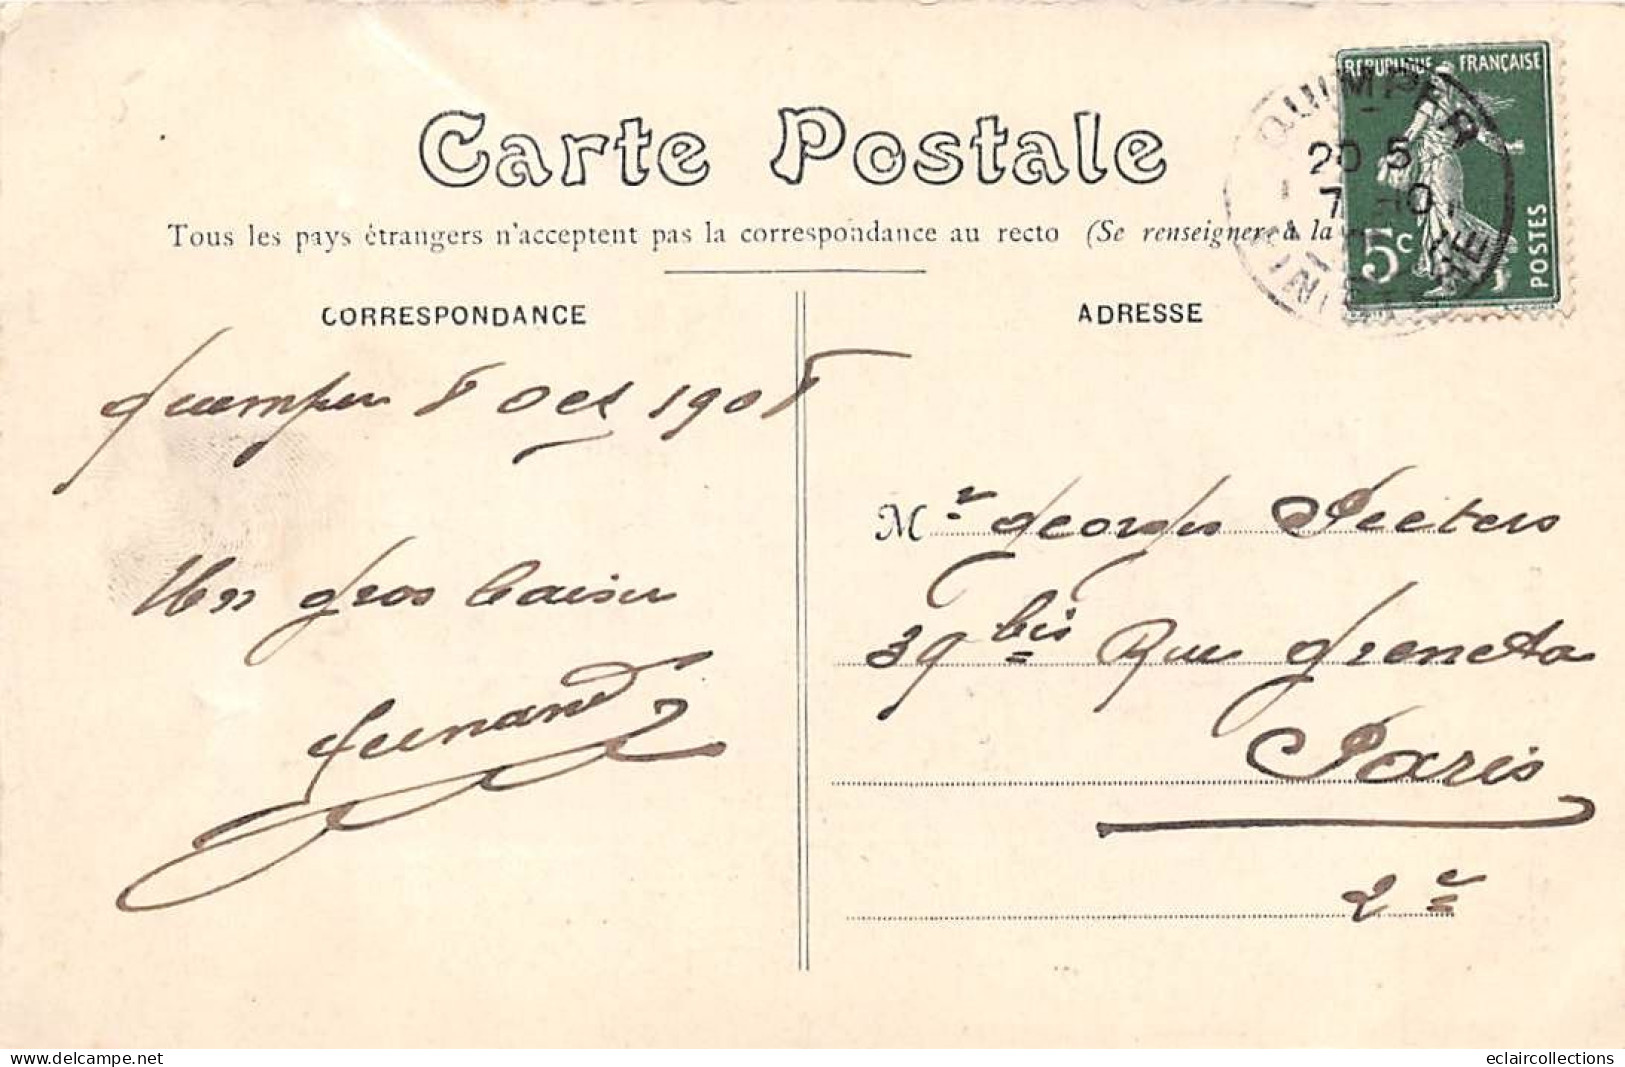 Carte Postale
Tous les pays étrangers n'acceptent pas la correspondance au recto (Se renseigner à la
RÉPUBLIQUE FRANÇAISE
5c
POSTES
QUIMPER
20 5
7 -10
FINISTERE
CORRESPONDANCE
Quimper 8 Oct 1908
Un gros baiser
Fernand
ADRESSE
Mr Georges Peeters
39 bis Rue Greneta
Paris
2e
www.delcampe.net
eclaircollections